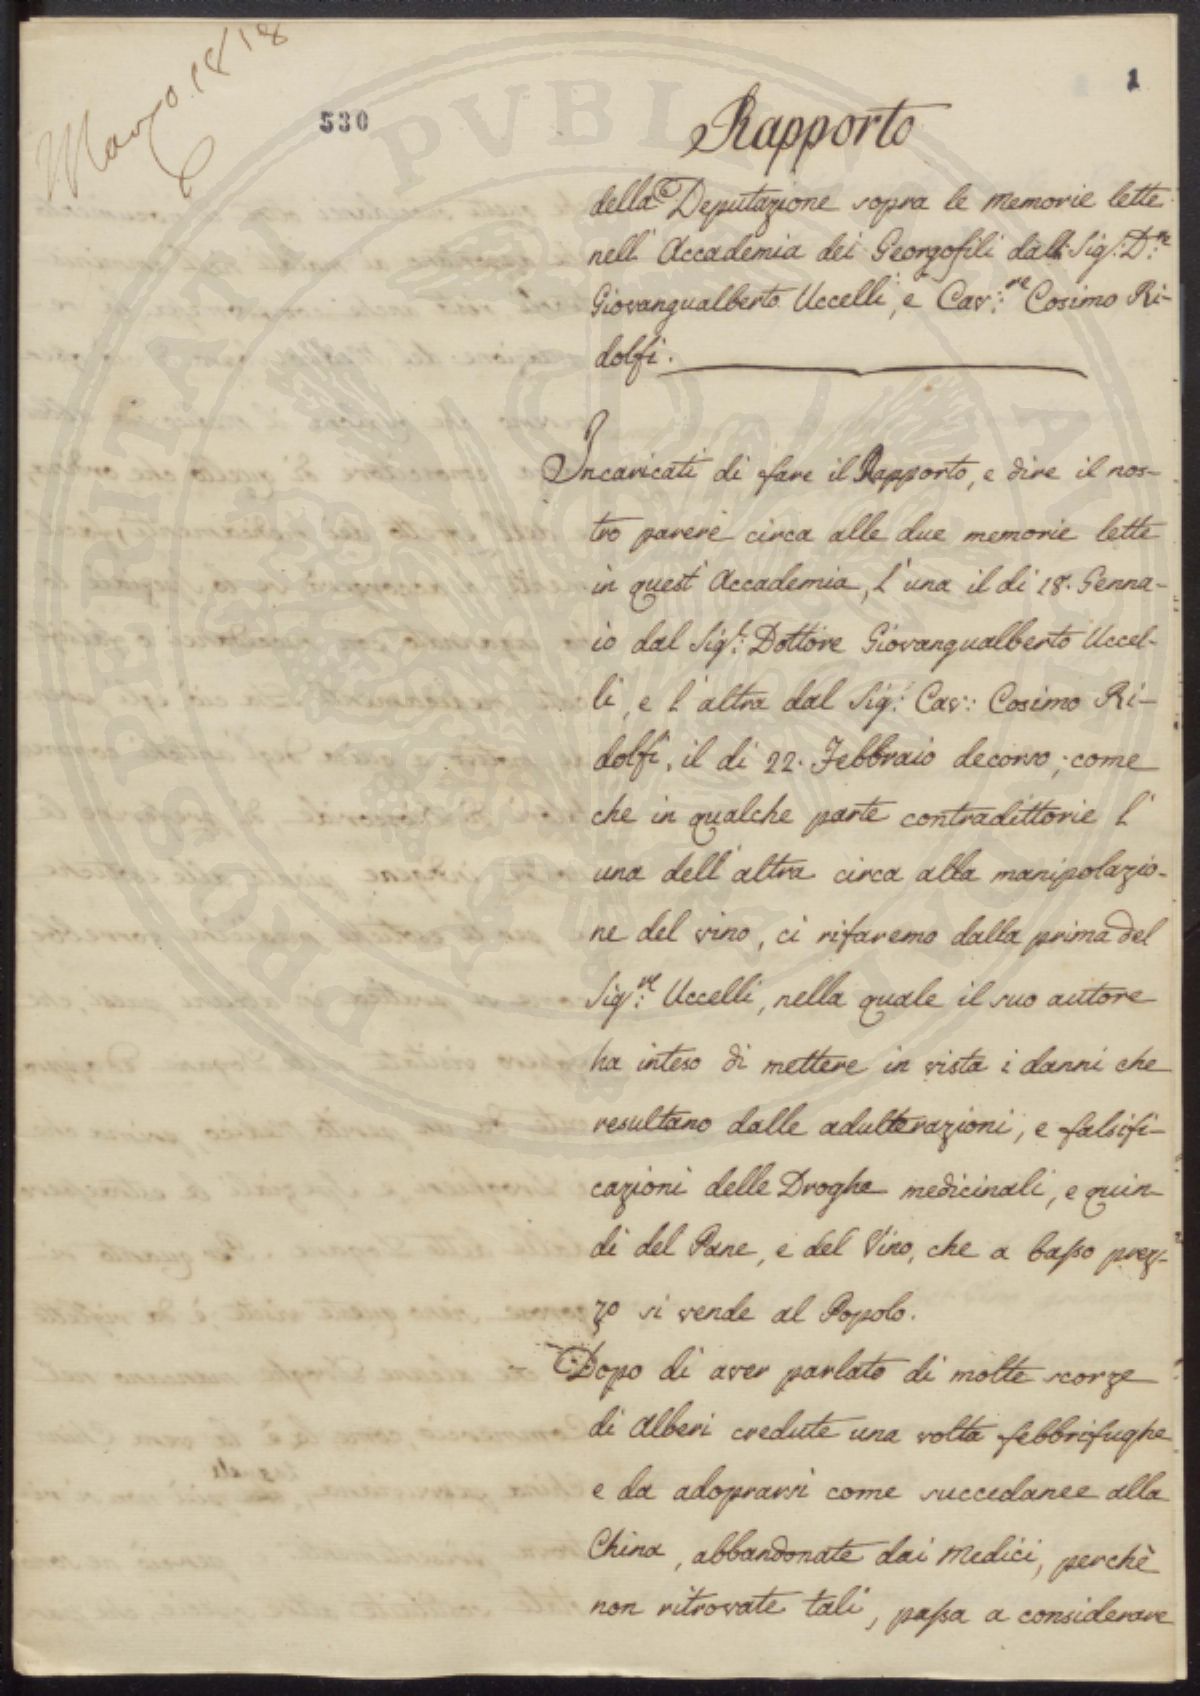 Marzo 1818
530
1
Rapporto
della Deputazione sopra le memorie lette
nell' Accademia dei Georgofili dall Sig. D.re
Giovangualberto Uccelli, e Cav:re Cosimo Ri-
dolfi.
Incaricati di fare il Rapporto, e dire il nos-
tro parere circa alle due memorie lette
in quest' Accademia, l' una il di 18. Genna-
io dal Sig.r Dottore Giovangualberto Uccel-
li, e l' altra dal Sig.r Cav: Cosimo Ri-
dolfi, il di 22. Febbraio decorso; come
che in qualche parte contradittorie l'
una dell' altra circa alla manipolazio-
ne del vino, ci rifaremo dalla prima del
Sig:re Uccelli, nella quale il suo autore
ha inteso di mettere in vista i danni che
resultano dalle adulterazioni, e falsifi-
cazioni delle Droghe medicinali, e quin-
di del Pane, e del Vino, che a basso prez-
zo si vende al Popolo.
Dopo di aver parlato di molte scorze
di Alberi credute una volta febbrifughe
e da adoprarsi come succedanee alla
China, abbandonate dai Medici, perchè
non ritrovate tali, passa a considerare
PROSPERITATI PVBLICAE AVGENDAE